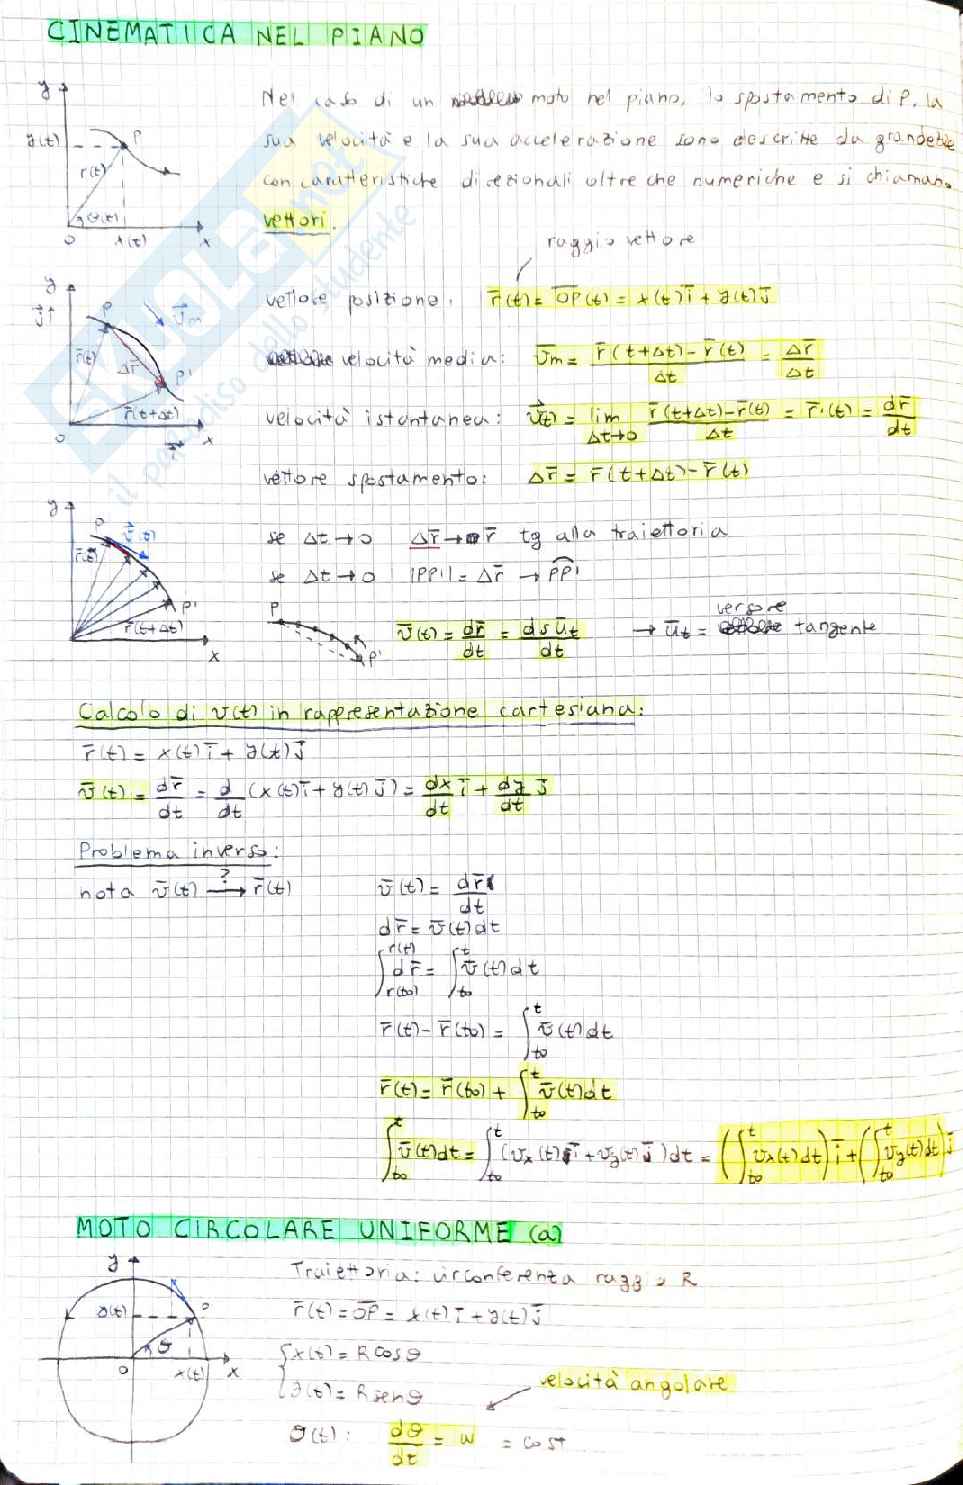 CINEMATICA NEL PIANO
y
y(t)
P
r(t)
θ(t)
O
x(t)
x
Nel caso di un moto nel piano, lo spostamento di P, la
sua velocità e la sua accelerazione sono descritte da grandezze
con caratteristiche direzionali oltre che numeriche e si chiamano
vettori.
SKUOLA.net
il paradiso dello studente
raggio vettore
vettore posizione: r̄(t) = O̅P̅(t) = x(t) ī + y(t) j̄
y
j
P
v⃗m
r̄(t)
Δr̄
P'
r̄(t+Δt)
O
x
velocità media: v̄m = r̄(t+Δt) - r̄(t) / Δt = Δr̄ / Δt
velocità istantanea: v⃗(t) = lim Δt→0 r̄(t+Δt) - r̄(t) / Δt = r̄'(t) = dr̄ / dt
vettore spostamento: Δr̄ = r̄(t+Δt) - r̄(t)
y
P
v̄(t)
r̄(t)
P'
r̄(t+Δt)
x
se Δt→0 Δr̄ → r̄ tg alla traiettoria
se Δt→0 |PP'| = Δr̄ → PP'
P
P'
v̄(t) = dr̄ / dt = ds ūt / dt → ūt = versore tangente
Calcolo di v(t) in rappresentazione cartesiana:
r̄(t) = x(t) ī + y(t) j̄
v̄(t) = dr̄ / dt = d / dt (x(t) ī + y(t) j̄) = dx / dt ī + dy / dt j̄
Problema inverso:
nota v̄(t) ?→ r̄(t)
v̄(t) = dr̄ / dt
dr̄ = v̄(t) dt
∫ r(t0) r(t) dr̄ = ∫ t0 t v̄(t) dt
r̄(t) - r̄(t0) = ∫ t0 t v̄(t) dt
r̄(t) = r̄(t0) + ∫ t0 t v̄(t) dt
∫ t0 t v̄(t) dt = ∫ t0 t (vx(t) ī + vy(t) j̄) dt = (∫ t0 t vx(t) dt) ī + (∫ t0 t vy(t) dt) j̄
MOTO CIRCOLARE UNIFORME (a)
y
y(t)
P
θ
O
x(t)
x
Traiettoria: circonferenza raggio R
r̄(t) = O̅P̅ = x(t) ī + y(t) j̄
{ x(t) = R cos θ
y(t) = R sen θ
velocità angolare
θ(t): dθ / dt = ω = cost